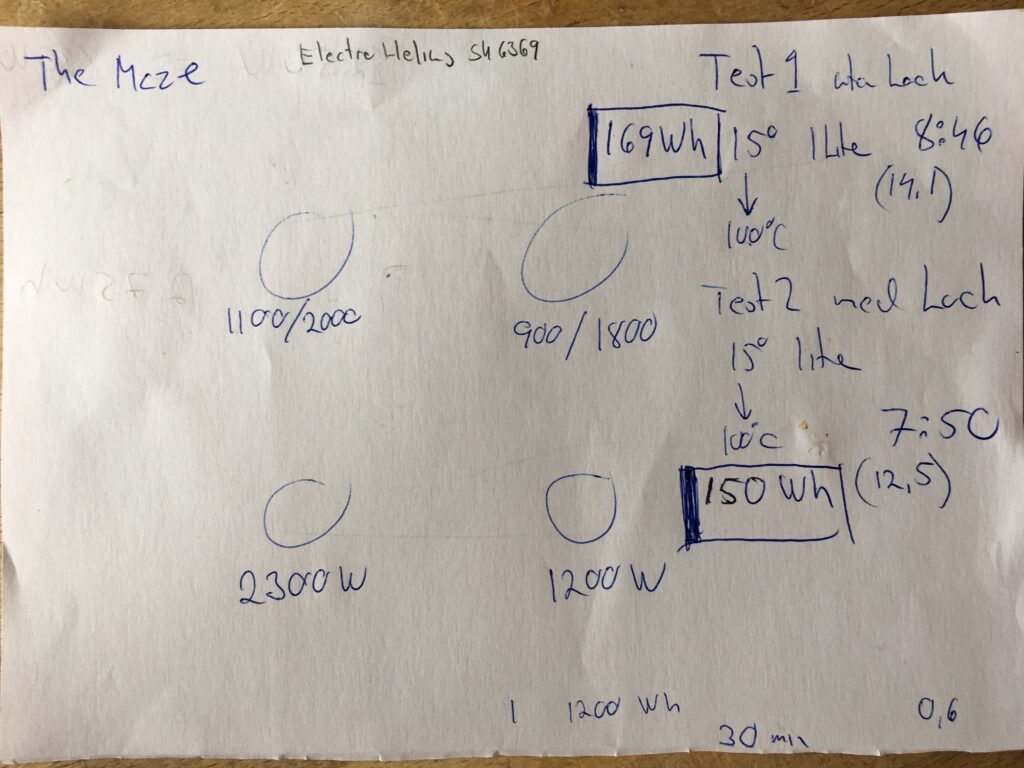 The Maze
Electro Helios SH 6369
Test 1 utan Lock
169Wh 15° 1 Lite 8:46
(14,1)
↓
100°C
1100/2000
900/1800
Test 2 med Lock
15° lite
↓
100°C
7:50
150 Wh (12,5)
2300 W
1200 W
1 1200 Wh
30 min
0,6